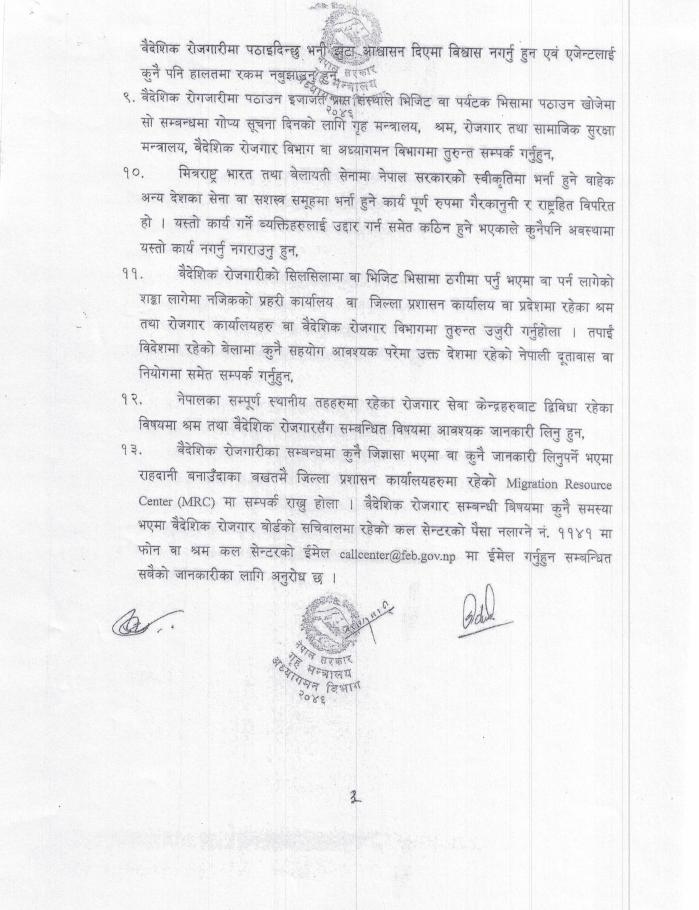 वैदेशिक रोजगारीमा पठाइदिन्छु भनी झुटा आश्वासन दिएमा विश्वास नगर्नु हुन एवं एजेन्टलाई
कुनै पनि हालतमा रकम नबुझाउनु हुन,
नेपाल सरकार
गृह मन्त्रालय
२०४६
९. वैदेशिक रोगजारीमा पठाउन इजाजत प्राप्त संस्थाले भिजिट वा पर्यटक भिसामा पठाउन खोजेमा
सो सम्बन्धमा गोप्य सूचना दिनको लागि गृह मन्त्रालय, श्रम, रोजगार तथा सामाजिक सुरक्षा
मन्त्रालय, वैदेशिक रोजगार विभाग वा अध्यागमन विभागमा तुरुन्त सम्पर्क गर्नुहुन,
१०. मित्रराष्ट्र भारत तथा वेलायती सेनामा नेपाल सरकारको स्वीकृतिमा भर्ना हुने वाहेक
अन्य देशका सेना वा सशस्त्र समूहमा भर्ना हुने कार्य पूर्ण रुपमा गैरकानुनी र राष्ट्रहित विपरित
हो । यस्तो कार्य गर्ने व्यक्तिहरुलाई उद्दार गर्न समेत कठिन हुने भएकाले कुनैपनि अवस्थामा
यस्तो कार्य नगर्नु नगराउनु हुन,
११. वैदेशिक रोजगारीको सिलसिलामा वा भिजिट भिसामा ठगीमा पर्नु भएमा वा पर्न लागेको
शङ्का लागेमा नजिकको प्रहरी कार्यालय वा जिल्ला प्रशासन कार्यालय वा प्रदेशमा रहेका श्रम
तथा रोजगार कार्यालयहरु वा वैदेशिक रोजगार विभागमा तुरुन्त उजुरी गर्नुहोला । तपाईं
विदेशमा रहेको बेलामा कुनै सहयोग आवश्यक परेमा उक्त देशमा रहेको नेपाली दूतावास वा
नियोगमा समेत सम्पर्क गर्नुहुन,
१२. नेपालका सम्पूर्ण स्थानीय तहहरुमा रहेका रोजगार सेवा केन्द्रहरुबाट द्विविधा रहेका
विषयमा श्रम तथा वैदेशिक रोजगारसँग सम्बन्धित विषयमा आवश्यक जानकारी लिनु हुन,
१३. वैदेशिक रोजगारीका सम्बन्धमा कुनै जिज्ञासा भएमा वा कुनै जानकारी लिनुपर्ने भएमा
राहदानी बनाउँदाका बखतमै जिल्ला प्रशासन कार्यालयहरुमा रहेको Migration Resource
Center (MRC) मा सम्पर्क राख्नु होला । वैदेशिक रोजगार सम्बन्धी विषयमा कुनै समस्या
भएमा वैदेशिक रोजगार बोर्डको सचिवालमा रहेको कल सेन्टरको पैसा नलाग्ने नं. ११४१ मा
फोन वा श्रम कल सेन्टरको ईमेल callcenter@feb.gov.np मा ईमेल गर्नुहुन सम्बन्धित
सबैको जानकारीका लागि अनुरोध छ ।
नेपाल सरकार
गृह मन्त्रालय
अध्यागमन विभाग
२०४६
३